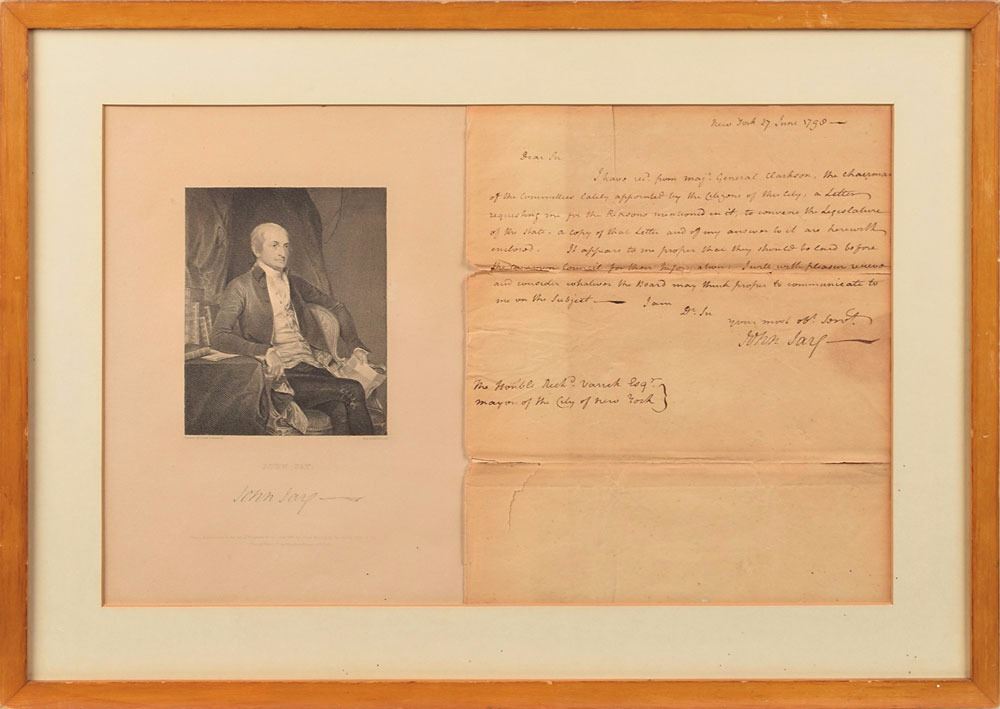 JOHN JAY.
John Jay
New York 27 June 1798
Dear Sir
I have recd. from majr. General Clarkson, the chairman
of the Committees lately appointed by the Citizens of this City, a Letter
requesting me for the Reasons mentioned in it, to convene the Legislature
of the State. a copy of that Letter and of my answer to it are herewith
enclosed. It appears to me proper that they should be laid before
the common Council for their Information. I will with pleasure recieve
and consider whatever the Board may think proper to communicate to
me on the Subject — I am
Dr. Sir
your most obt. Servt.
John Jay
The Honble Richd. Varick Esqr.
mayor of the City of New York